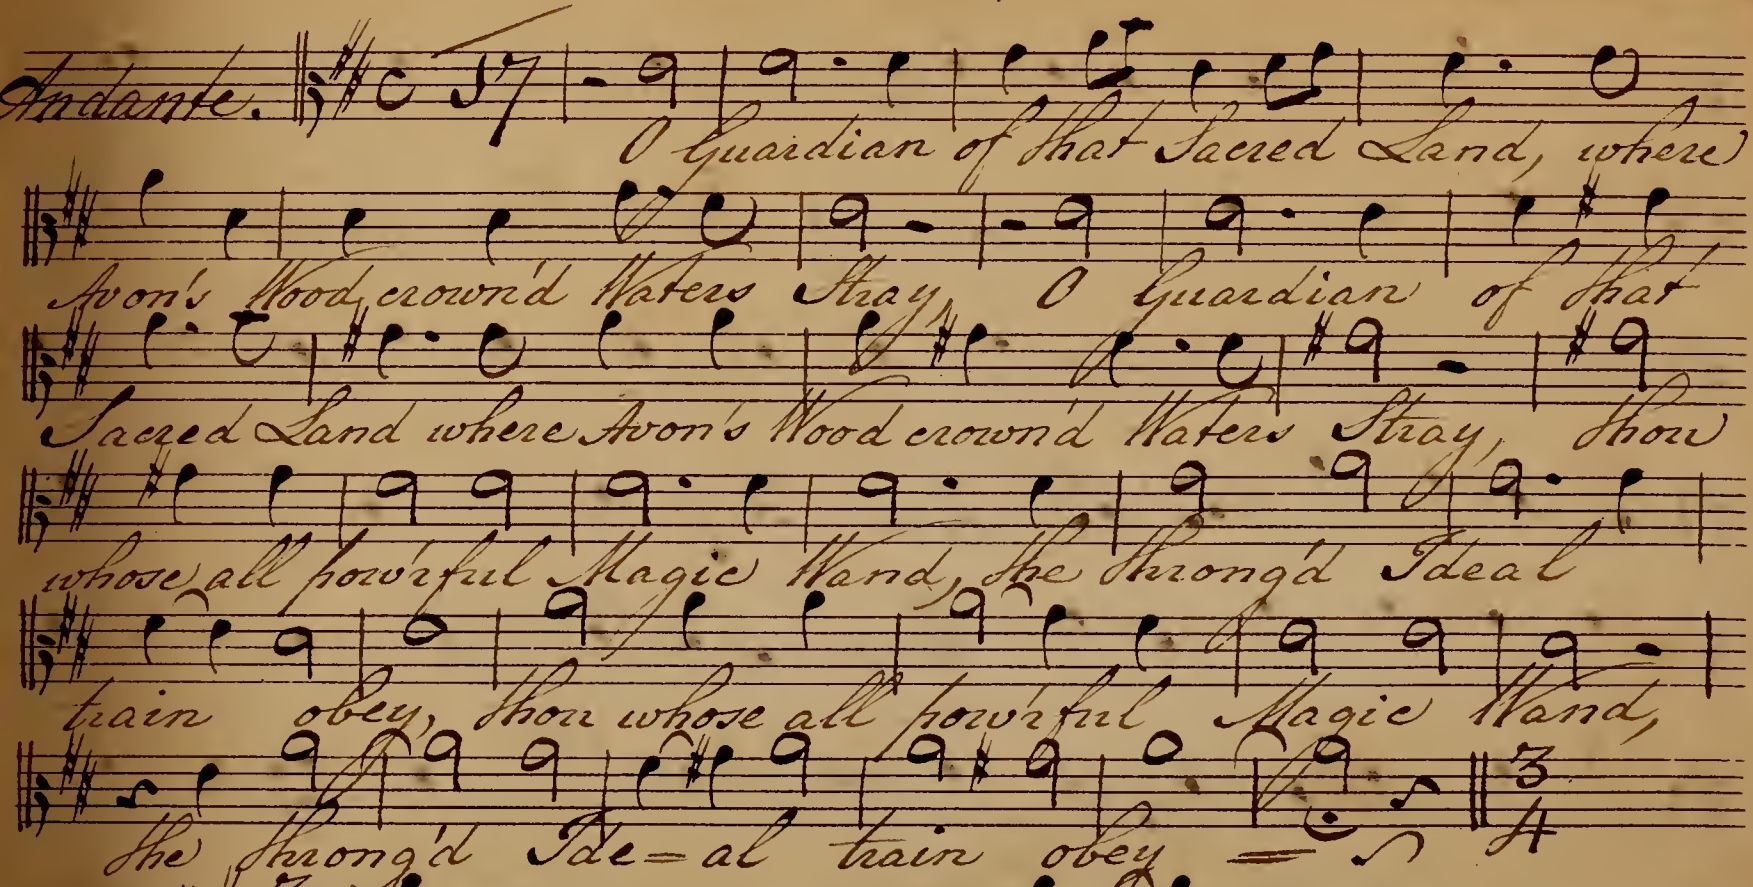 Andante. C 17
O Guardian of that Sacred Land, where
Avon's Wood crown'd Waters Stray, O Guardian of that
Sacred Land where Avon's Wood crown'd Waters Stray, thou
whose all pow'rful Magic Wand, the throng'd Ideal
train obey, thou whose all pow'rful Magic Wand,
3
4
the throng'd Ide=al train obey =